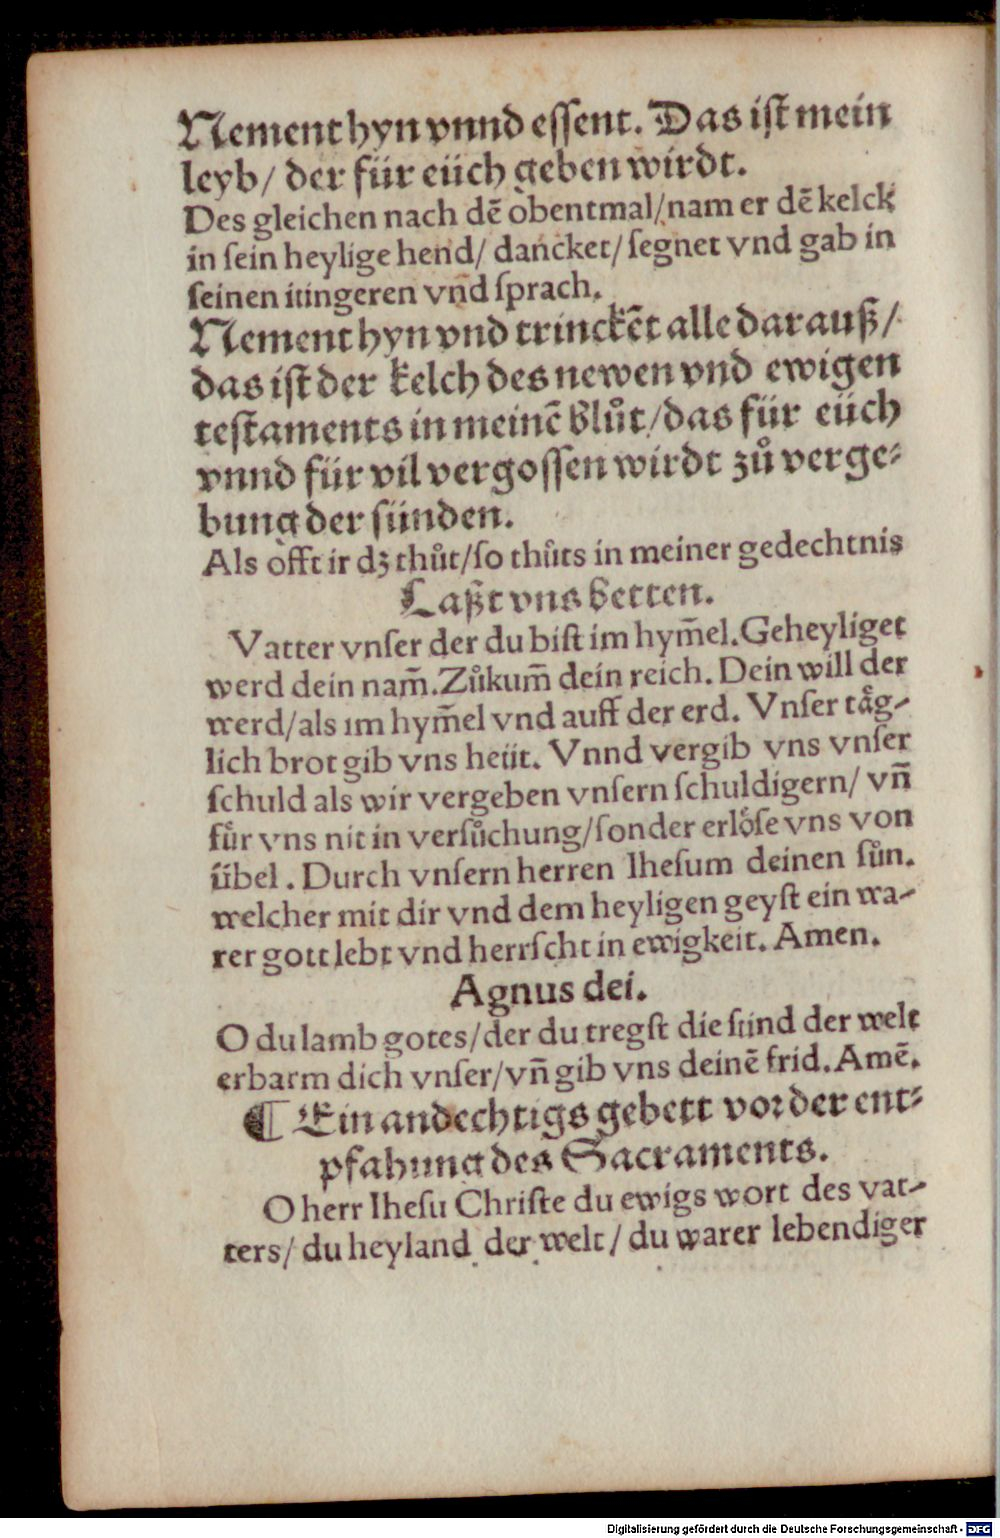 Nement hyn vnnd eſſent. Das iſt mein
leyb/ der für eüch geben wirdt.
Des gleichen nach dē obentmal/nam er dē kelck
in ſein heylige hend/ dancket/ ſegnet vnd gab in
ſeinen iüngeren vnd ſprach.
Nement hyn vnd trinckēt alle dar auß/
das iſt der kelch des newen vnd ewigen
teſtaments in meinē blůt/das für eüch
vnnd für vil vergoſſen wirdt zů verge⸗
bung der ſünden.
Als offt ir dz thůt/ſo thůts in meiner gedechtnis
Laßt vns betten.
Vatter vnſer der du biſt im hym̄el.Geheyliget
werd dein nam̄.Zůkum̄ dein reich. Dein will der
werd/als im hym̄el vnd auff der erd. Vnſer tåg-
lich brot gib vns heüt. Vnnd vergib vns vnſer
ſchuld als wir vergeben vnſern ſchuldigern/ vn̄
fůr vns nit in verſůchung/ſonder erlöſe vns von
übel. Durch vnſern herren Iheſum deinen ſůn.
welcher mit dir vnd dem heyligen geyſt ein wa-
rer gott lebt vnd herrſcht in ewigkeit. Amen.
Agnus dei.
O du lamb gotes/der du tregſt die ſünd der welt
erbarm dich vnſer/vn̄ gib vns deinē frid.Amē.
¶ Ein andechtigs gebett vor der ent⸗
pfahung des Sacraments.
O herr Iheſu Chriſte du ewigs wort des vat-
ters/ du heyland der welt/ du warer lebendiger
Digitalisierung gefördert durch die Deutsche Forschungsgemeinschaft - DFG